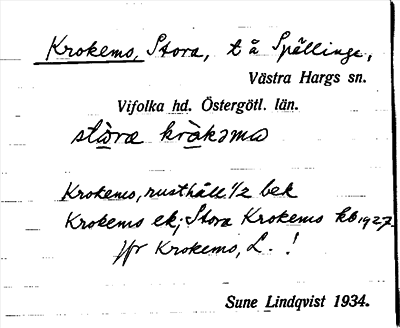 Krokemo, Stora, t å Spellinge,
Västra Hargs sn.
Vifolka hd. Östergötl. län.
stòra kròkəmo
Krokemo, rusthåll 1/2 bek
Krokemo ek; Stora Krokemo kb 1927.
jfr Krokemo, L. !
Sune Lindqvist 1934.